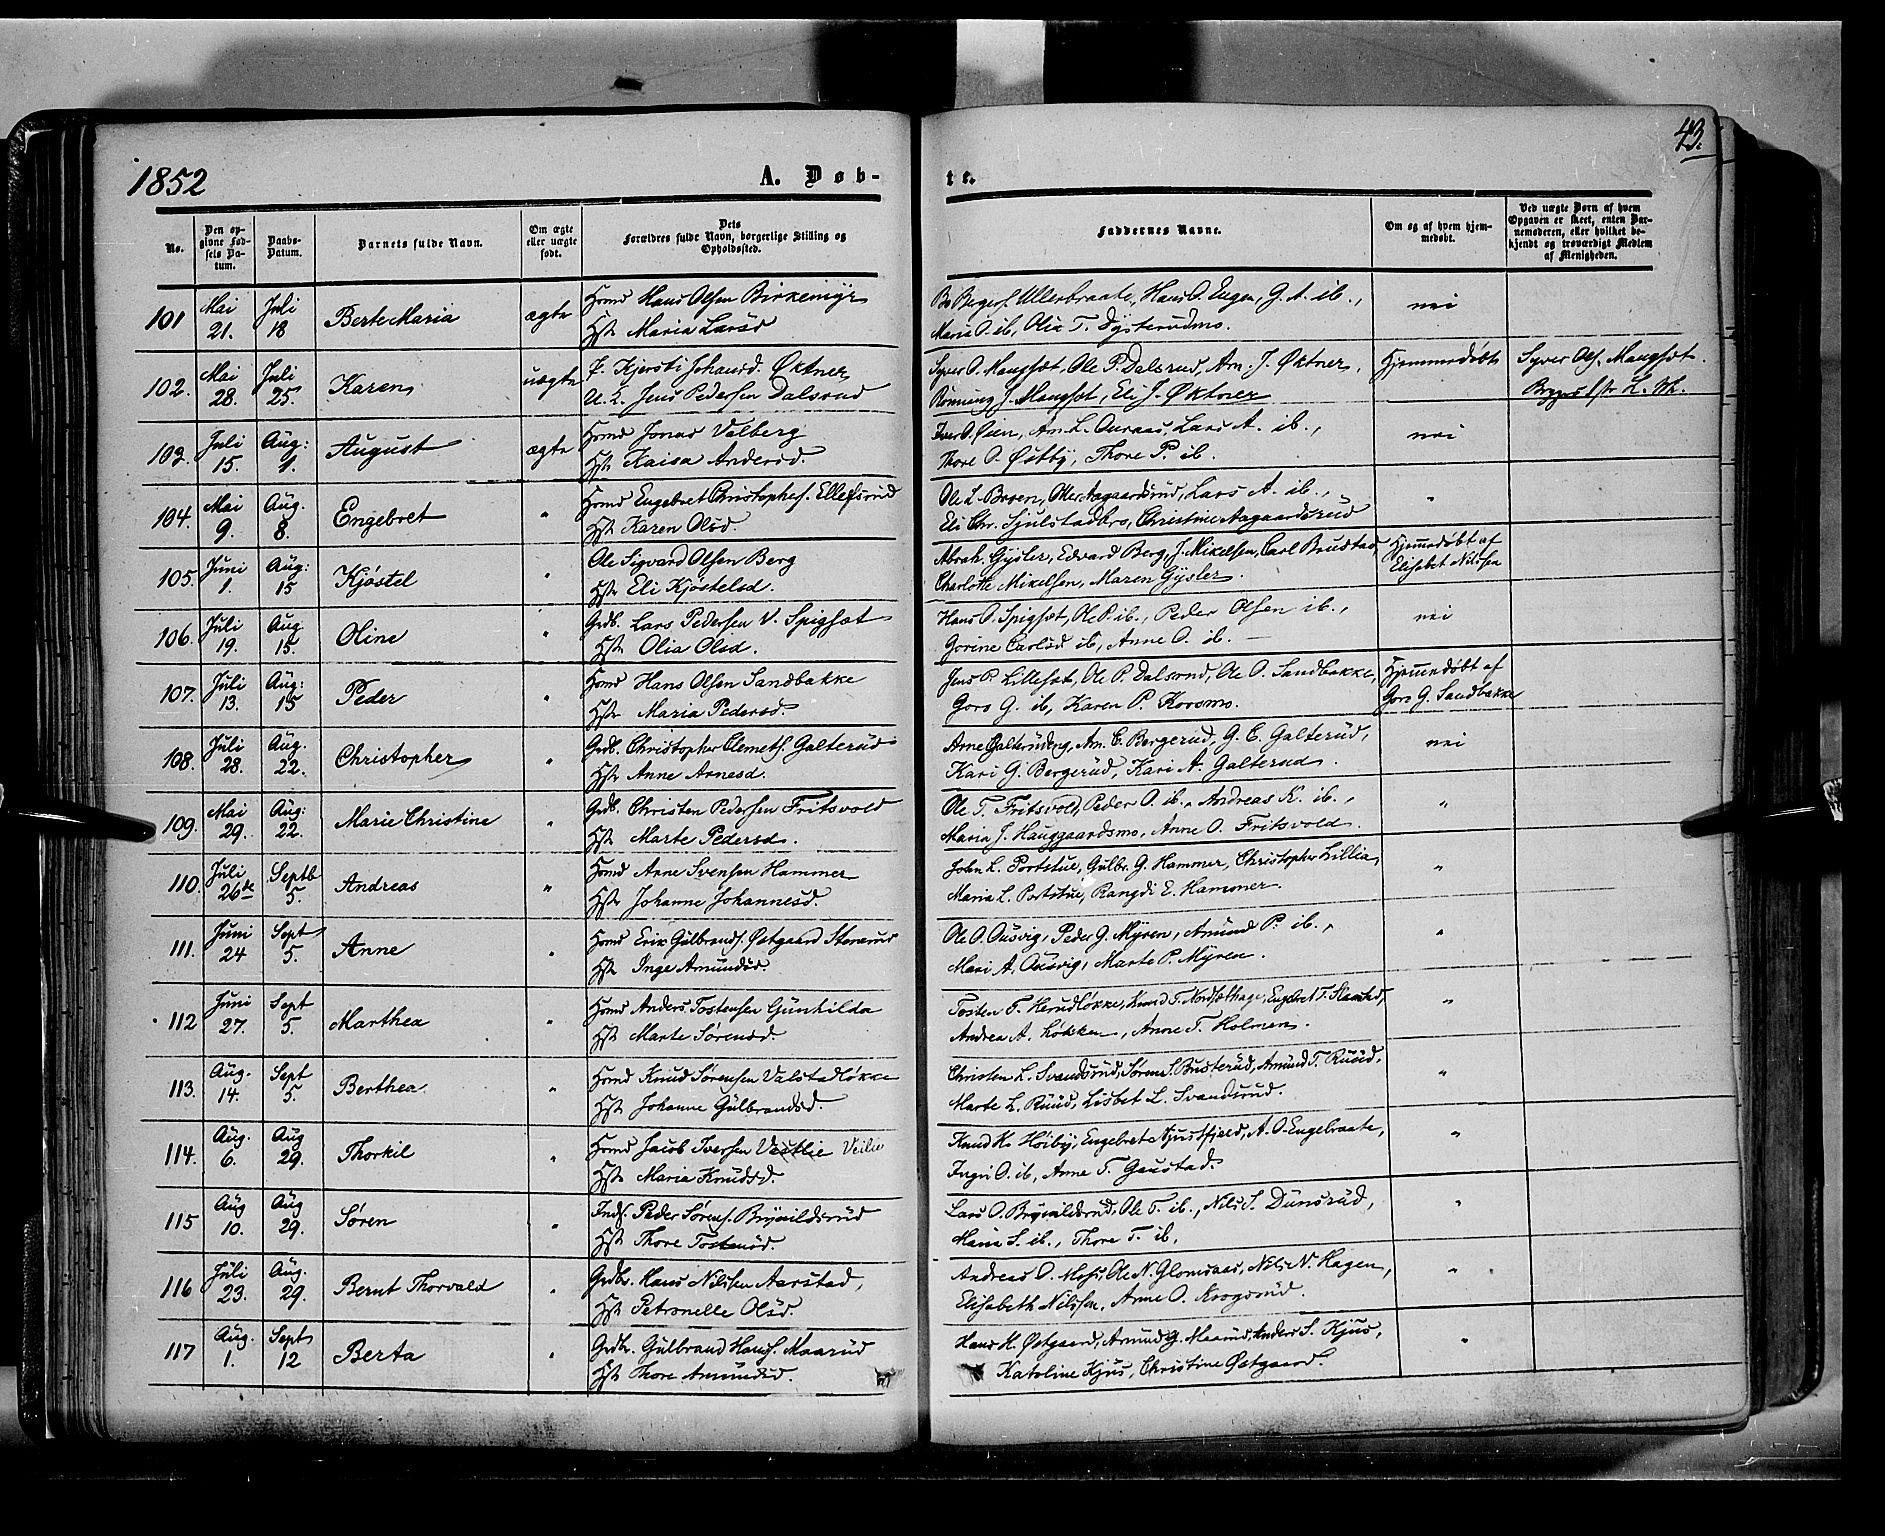 1852
A. Døb-
te.
43.
No.
Den op-
givne Fød-
sels Da-
tum.
Daabs-
Datum.
Barnets fulde Navn.
Om ægte
eller uægte
født.
Dets
Forældres fulde Navn, borgerlige Stilling og
Opholdssted.
Faddernes Navne.
Om og af hvem hjem-
medøbt.
Ved uægte Børn af hvem
Opgaven er skeet, enten Bar-
nemoderen, eller hvilket be-
kjendt og troværdigt Medlem
af Menigheden.
101 Mai 21. Juli 18 Berte Maria ægte Hmd Hans Olsen Birkemyr
Hst. Maria Larsd
Bergers. Ullerbraate, Hans O. Engen, G. A. ib.,
Maria O. ib, Olia T. Dysterudmo.
nei
102. Mai 28. Juli 25. Karen uægte P. Kjersti Johansd. Øktner
U. K. Jens Pedersen Dalsrud
Syver O. Mangset, Ole P. Dalsrud, Arn. J. Øktner,
Rønnung J. Mangset, Eli J. Øktner
Hjemmedøbt
Syver Ols. Mangset.
103. Juli 15. Aug: 1. August ægte Hmd Jonas Valberg
Hst. Kaisa Andersd.
Iver O. Øien, Am. L. Auraas, Lars A. ib.,
Thore O. Østby, Thore P. ib.
nei
104. Mai 9. Aug. 8. Engebret " Hmd Engebret Christophes. Ellefsrud
Hst. Karen Olsd.
Ole L. Broen, Ole Aagaardsrud, Lars A. ib.,
Eli Chr. Sjulstadbro, Christine Aagaardsrud
"
105. Juni 1. Aug: 15 Kjøstel " Ole Sigvard Olsen Berg
Hst. Eli Kjøstelsd.
Abrah. Gysler, Edvard Berg, J. Mikelsen, Carl Brustad,
Charlotte Mikelsen, Maren Gysler.
Hjemmedøbt af
Elisabet Nilsen
106. Juli 19. Aug 15. Oline " Grdb. Lars Pedersen V. Spigset
Hst. Olia Olsd.
Hans O. Spigset, Ole P. ib., Peder Olsen ib.,
Gorine Carlsd ib, Anne O. ib. —
nei
107. Juli 13. Aug: 15 Peder " Hmd Hans Olsen Sandbakke
Hst. Maria Pedersd.
Jens P. Lilleset, Ole P. Dalsrud, Ole O. Sandbakke,
Goro G. ib, Karen P. Korsmo.
Hjemmedøbt af
Goro G. Sandbakke
108. Juli 28. Aug. 22. Christopher " Grdb. Christopher Clemets. Galterud
Hst. Anne Arnesd.
Arne Galterudeng, Am. C. Bergerud, G. C. Galterud,
Kari G. Bergerud, Kari A. Galterud.
nei
109. Mai 29. Aug: 22. Marie Christine " Grdb. Christen Pedersen Fritsvold
Hst. Marte Pedersd.
Ole T. Fritsvold, Peder O. ib., Andreas K. ib.,
Maria J. Hauggaardsmo, Anne O. Fritsvold.
"
110. Juli 26de Septb 5. Andreas " Hmd Arne Svensen Hammer
Hst. Johanne Johannesd.
John L. Portstue, Gulbr. G. Hammer, Christopher Lillia,
Maria L. Portstue, Rangdi E. Hammer.
"
111. Juni 24 Sept 5. Anne " Hmd Erik Gulbrands. Østgaard Storerud
Hst. Inge Amundsd.
Ole O. Ousvig, Peder G. Myren, Amund P. ib.,
Mari A. Ousvig, Marte P. Myren.
"
112 Juni 27. Sept 5. Marthea " Hmd Anders Tostensen Gunhilda
Hst. Marte Sørensd.
Tosten T. Herudløkke, Knud T. Nordsethage, Engebret T. Skarstad,
Andrea A. Løkken, Anne T. Holmen.
"
113. Aug. 14. Sept 5. Berthea. " Hmd Knud Sørensen Valstadløkke
Hst. Johanne Gulbrandsd.
Christen L. Svandsrud, Søren S. Busterud, Amund T. Ruud,
Marte L. Ruud, Lisbet L. Svandsrud.
"
114. Aug. 6. Aug 29. Thorkil " Hmd Jacob Iversen Vestlie Veilie
Hst. Maria Knudsd.
Knud K. Høiby, Engebret Njustfjeld, A. O. Engebraate,
Ingri O. ib, Anne T. Gaustad.
"
115 Aug 10. Aug 29. Søren " Inds. Peder Sørens. Brynildsrud
Hst. Thore Tostensd.
Lars O. Brynildsrud, Ole T. ib., Nils S. Dunsrud,
Maria S. ib., Thore T. ib.
"
116 Juli 23. Aug. 29. Bernt Thorvald " Grdbr. Hans Nilsen Aarstad,
Hst. Petronelle Olsd.
Andreas O. Moss, Ole N. Glomsaas, Nils N. Hagen,
Elisabeth Nilsen, Anne O. Krogsrud.
"
117 Aug. 1. Sept 12 Berta " Grdbr. Gulbrand Hans. Maarud
Hst. Thore Amundsd.
Hans H. Østgaard, Amund G. Maarud, Anders S. Kjus,
Katoline Kjus, Christine Østgaard.
"